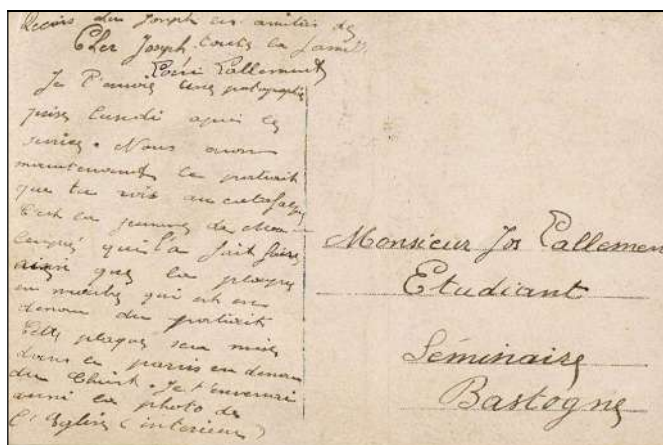 Reçois du Joseph les amitiés de
toute la famill
Cher Joseph
Louis Lallement
Je t'envoie une photographie
prise lundi après le
service. Nous avons
maintenant le portrait
que tu vois au catafalque
C'est la jeunesse de
qui l'a fait faire
ainsi que la plaque
en marbre qui est en
dessous du portrait
Cette plaque sera mise
dans le parvis en dessous
du Christ. Je t'enverrai
aussi la photo de
l'Eglise (intérieur)
Monsieur Jos Lallemen
Etudiant
Séminaire
Bastogne